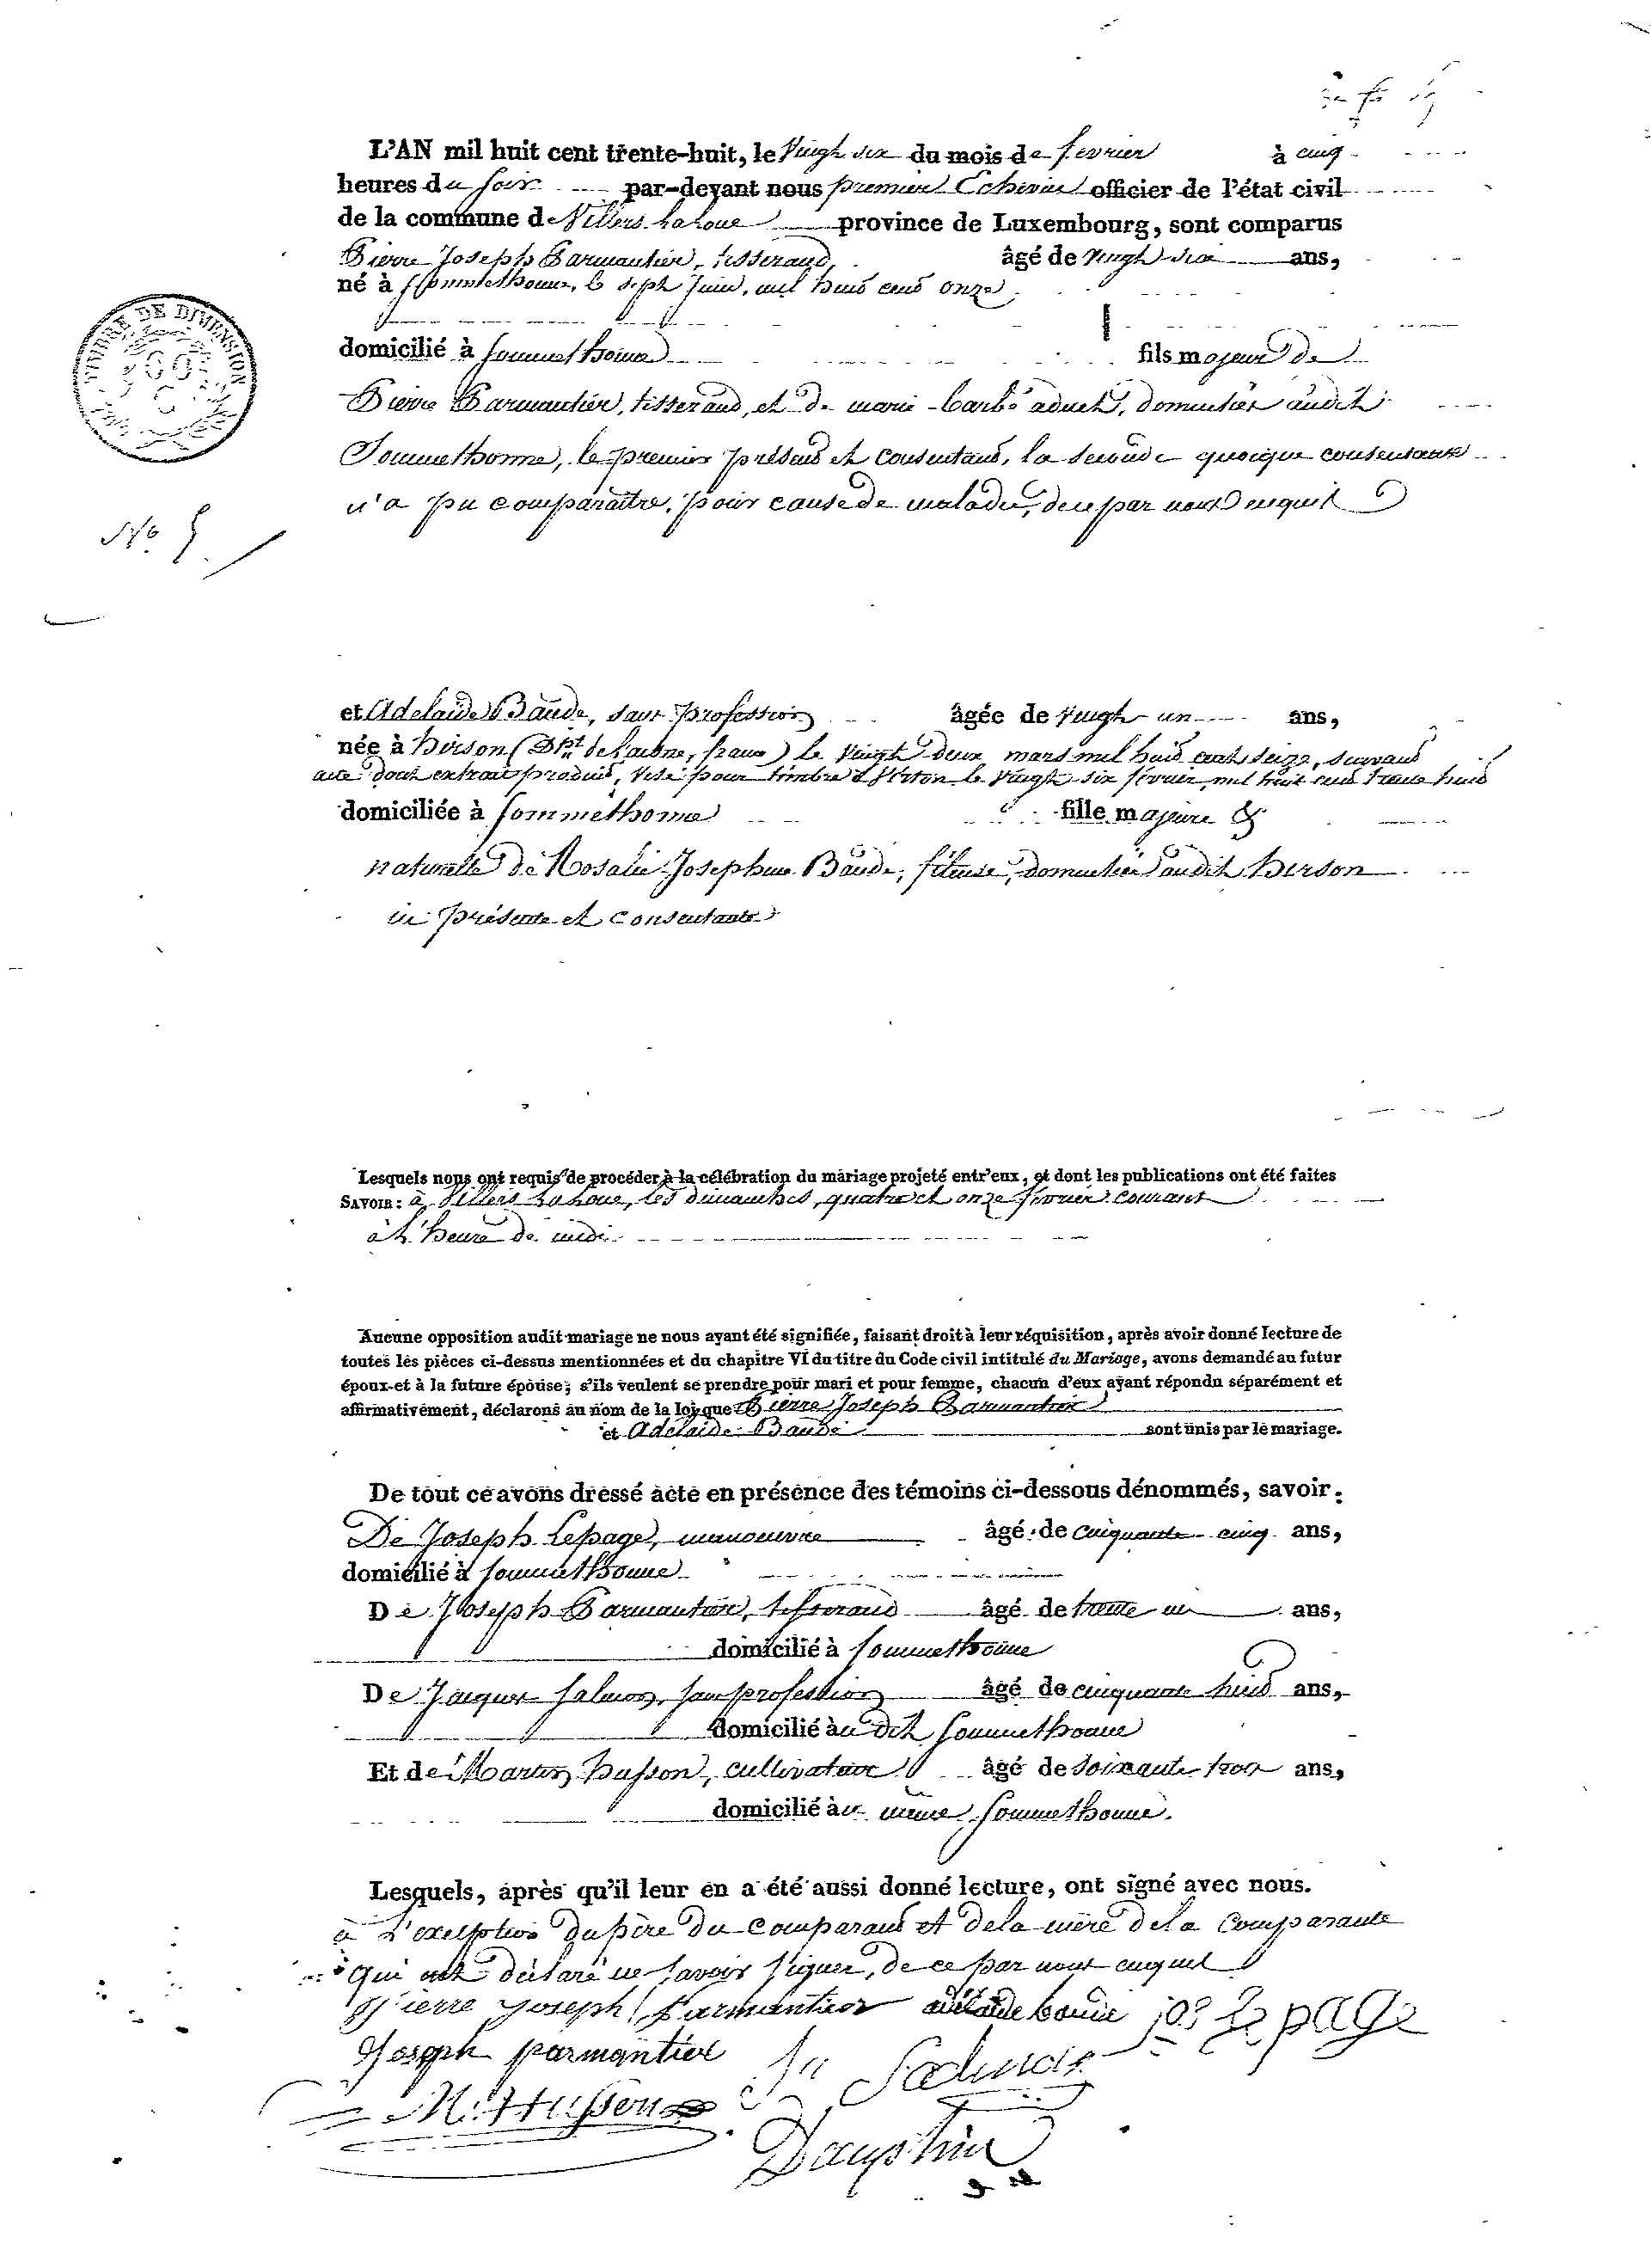 L'AN mil huit cent trente-huit, le Vingt six du mois de fevrier à cinq
heures du soir par-devant nous premier Echevin officier de l'état civil
de la commune de Villers la loue province de Luxembourg, sont comparus
Pierre Joseph Parmantier, tisserand, âgé de Vingt six ans,
né à Sommethonne, le sept juin, mil huit cent onze
TIMBRE DE DIMENSION
domicilié à Sommethonne fils majeur de
Pierre Parmantier, tisserand, et de marie barbe aduet, domiciliés audit
Sommethonne, le premier présent et consentant, la seconde quoique consentante
n'a pu comparaître, pour cause de maladie, de ce par nous enquis
No. 5
et Adelaïde Baude, sans profession âgée de Vingt un ans,
née à hirson (Dpt de l'aisne, france) le Vingt deux mars mil huit cent seize, suivant
acte dont extrait produit, visé pour timbre à Virton le Vingt six février mil huit cent trente huit
domiciliée à Sommethonne fille majeure &
naturelle de Rosalie Josephine Baude, fileuse, domiciliée audit hirson
ici présente et consentante
Lesquels nous ont requis de procéder à la célébration du mariage projeté entr'eux, et dont les publications ont été faites
SAVOIR : à Villers la loue, les dimanches, quatre et onze février courant
à l'heure de midi
Aucune opposition audit mariage ne nous ayant été signifiée, faisant droit à leur réquisition, après avoir donné lecture de
toutes les pièces ci-dessus mentionnées et du chapitre VI du titre du Code civil intitulé du Mariage, avons demandé au futur
époux et à la future épouse; s'ils veulent se prendre pour mari et pour femme, chacun d'eux ayant répondu séparément et
affirmativement, déclarons au nom de la loi que Pierre Joseph Parmantier
et Adelaïde Baude sont unis par le mariage.
De tout ce avons dressé acte en présence des témoins ci-dessous dénommés, savoir :
De Joseph Lepage, manouvre âgé de Cinquante cinq ans,
domicilié à Sommethonne
De Joseph Parmantier, tisserand âgé de trente un ans,
domicilié à Sommethonne
De Jacques Salmon, sans profession âgé de cinquante huit ans,
domicilié au dit Sommethonne
Et de Martin husson, cultivateur âgé de Soixante trois ans,
domicilié au même Sommethonne.
Lesquels, après qu'il leur en a été aussi donné lecture, ont signé avec nous.
à l'exception du père du comparant et de la mère de la Comparante
qui ont déclaré ne savoir signer, de ce par nous enquis
Pierre Joseph Parmantier adelaide baude jos Le page
Joseph parmantier
M. Husson
Dauphin